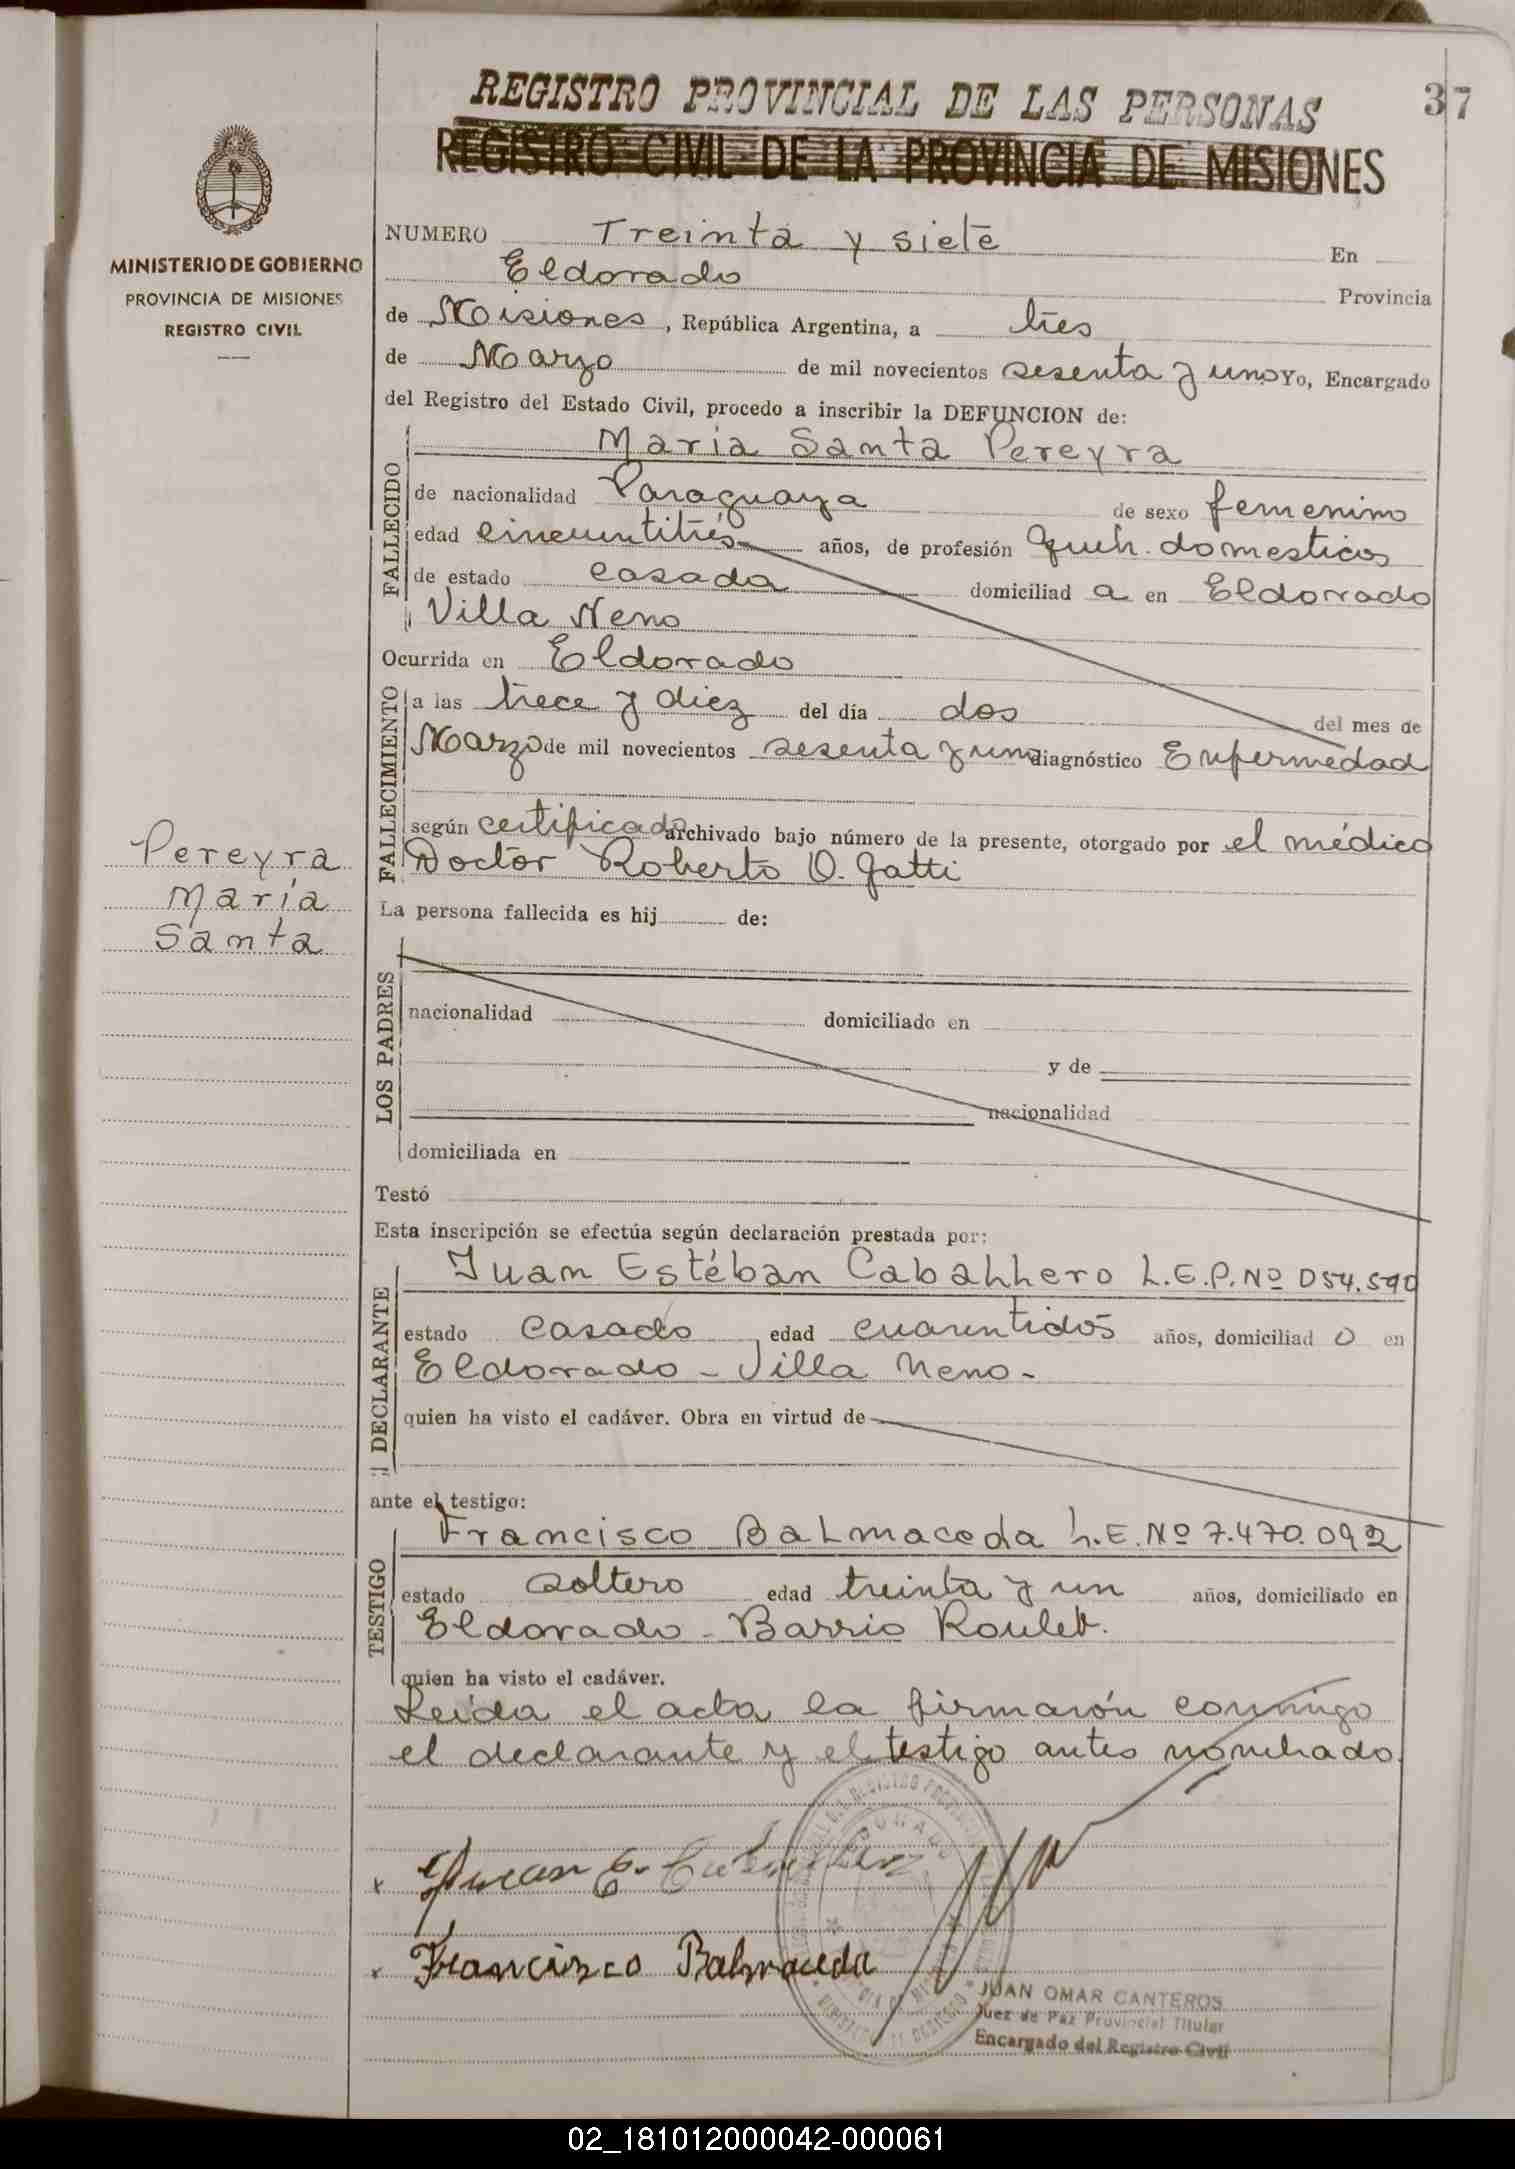 REGISTRO PROVINCIAL DE LAS PERSONAS
37
REGISTRO CIVIL DE LA PROVINCIA DE MISIONES
MINISTERIO DE GOBIERNO
PROVINCIA DE MISIONES
REGISTRO CIVIL
NUMERO Treinta y siete En
Eldorado Provincia
de Misiones, República Argentina, a tres
de Marzo de mil novecientos sesenta y uno Yo, Encargado
del Registro del Estado Civil, procedo a inscribir la DEFUNCION de:
María Santa Pereyra
FALLECIDO
de nacionalidad Paraguaya de sexo femenino
edad cincuntitrés años, de profesión queh. domesticos
de estado casada domiciliad a en Eldorado
Villa Neno
Ocurrida en Eldorado
FALLECIMIENTO
a las trece y diez del día dos del mes de
Marzo de mil novecientos sesenta y uno diagnóstico Enfermedad
según certificado archivado bajo número de la presente, otorgado por el médico
Doctor Roberto O. Gatti
Pereyra
María
Santa
La persona fallecida es hij de:
LOS PADRES
nacionalidad domiciliado en
y de
nacionalidad
domiciliada en
Testó
Esta inscripción se efectúa según declaración prestada por:
DECLARANTE
Juan Estéban Caballero L.E.P. Nº 054.590
estado casado edad cuarentidós años, domiciliad o en
Eldorado - Villa Neno -
quien ha visto el cadáver. Obra en virtud de
ante el testigo:
TESTIGO
Francisco Balmaceda L.E. Nº 7.470.092
estado soltero edad treinta y un años, domiciliado en
Eldorado - Barrio Roulet.
quien ha visto el cadáver.
Leída el acta la firmarón conmigo
el declarante y el testigo antes nombrado.
x Juan E. Caballero
x Francisco Balmaceda
JUAN OMAR CANTEROS
Juez de Paz Provincial Titular
Encargado del Registro Civil
02_181012000042-000061